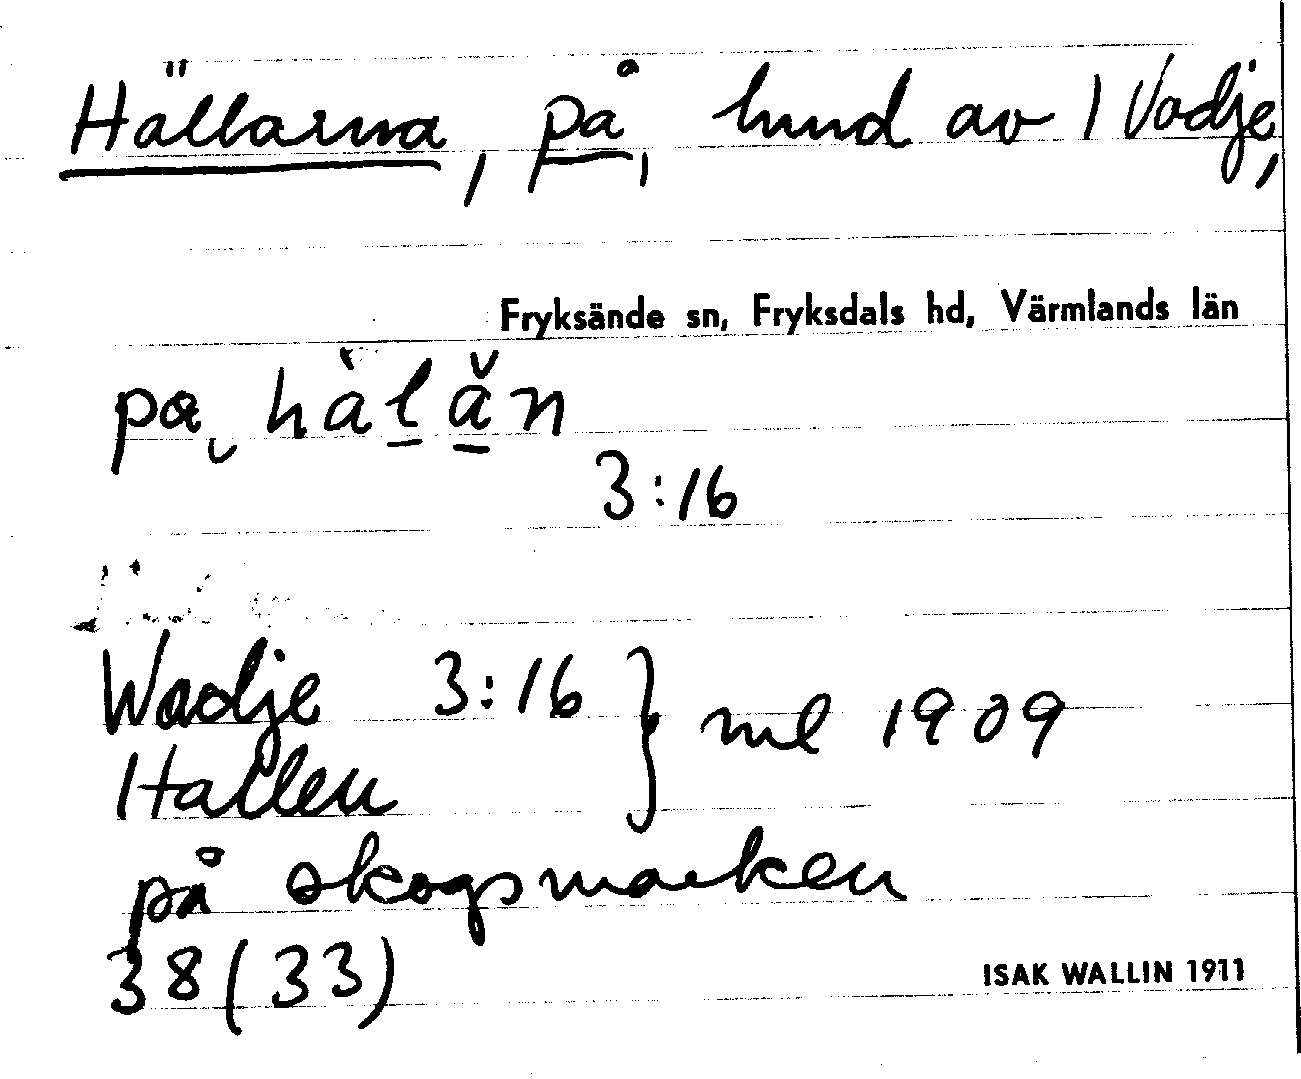 Hällarna, på, hmd av 1 Vadje,
Fryksände sn, Fryksdals hd, Värmlands län
pa hälän
3:16
Wadje 3:16 } ml 1909
Hallen
på skogsmarken
38 (33)
ISAK WALLIN 1911